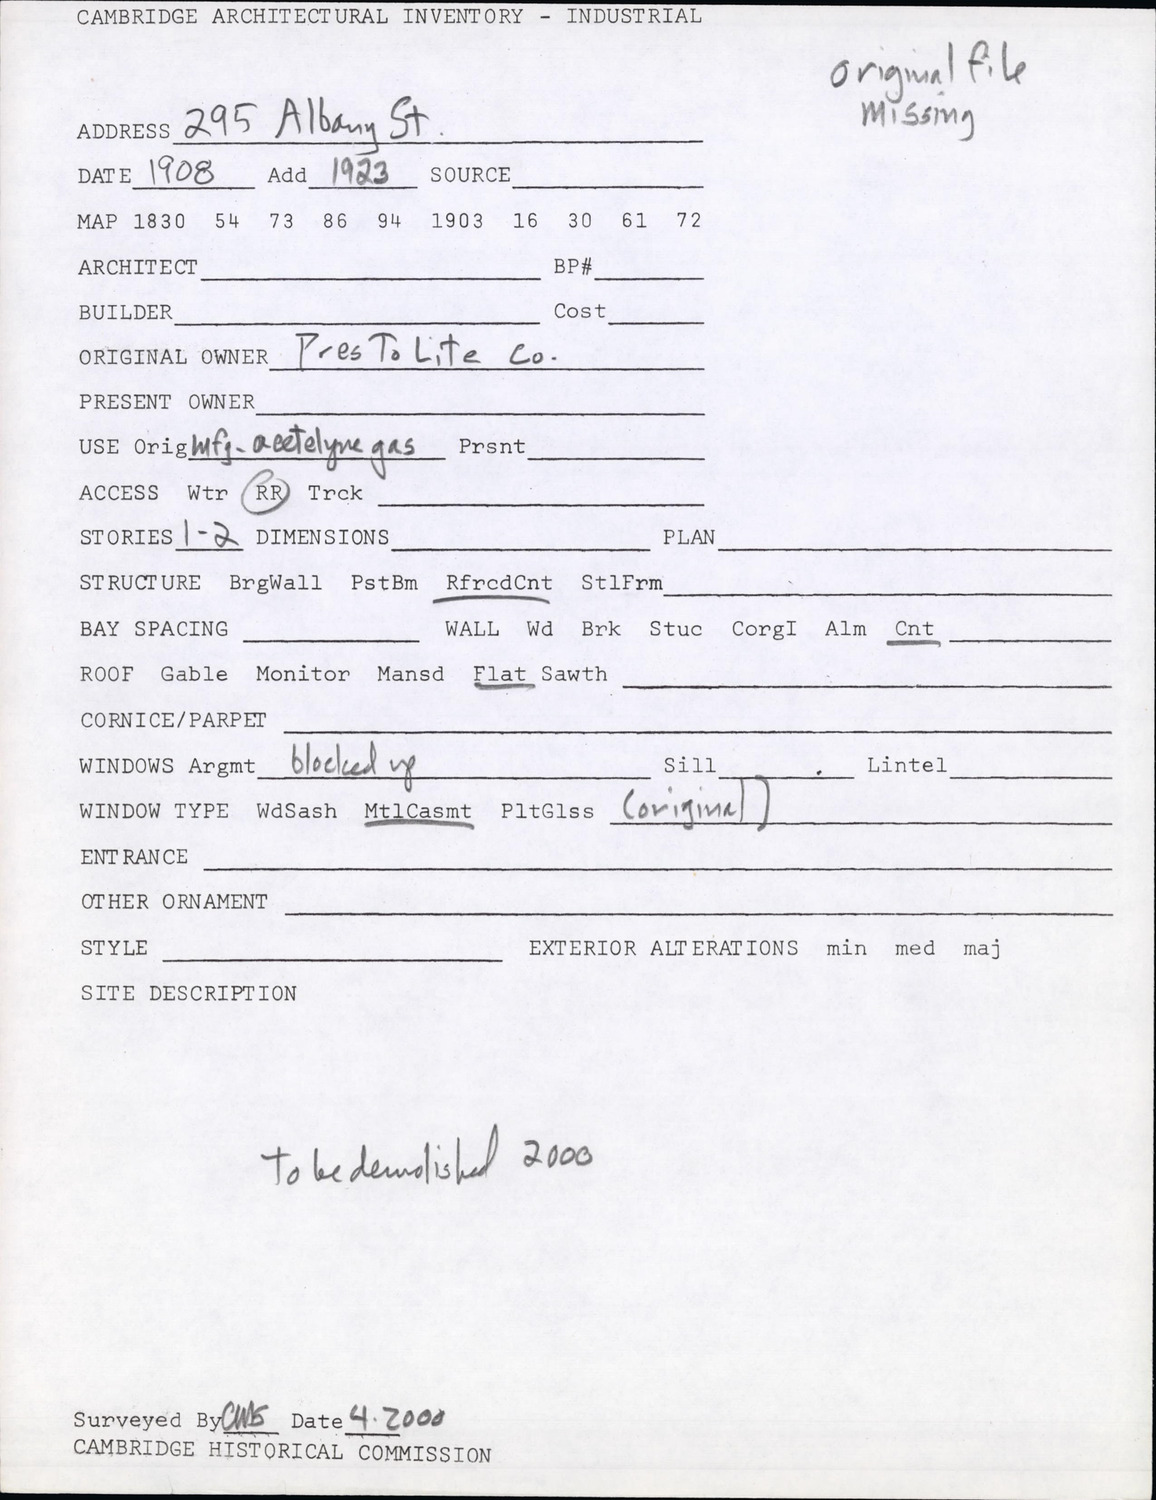 CAMBRIDGE ARCHITECTURAL INVENTORY - INDUSTRIAL
original file
Missing
ADDRESS 295 Albany St.
DATE 1908 Add 1923 SOURCE
MAP 1830 54 73 86 94 1903 16 30 61 72
ARCHITECT BP#
BUILDER Cost
ORIGINAL OWNER Pres To Lite Co.
PRESENT OWNER
USE Orig Mfg. acetelyne gas Prsnt
ACCESS Wtr RR Trck
STORIES 1-2 DIMENSIONS PLAN
STRUCTURE BrgWall PstBm RfrcdCnt StlFrm
BAY SPACING WALL Wd Brk Stuc CorgI Alm Cnt
ROOF Gable Monitor Mansd Flat Sawth
CORNICE/PARPET
WINDOWS Argmt blocked up Sill Lintel
WINDOW TYPE WdSash MtlCasmt PltGlss (original)
ENTRANCE
OTHER ORNAMENT
STYLE EXTERIOR ALTERATIONS min med maj
SITE DESCRIPTION
To be demolished 2000
Surveyed By CMS Date 4.2000
CAMBRIDGE HISTORICAL COMMISSION